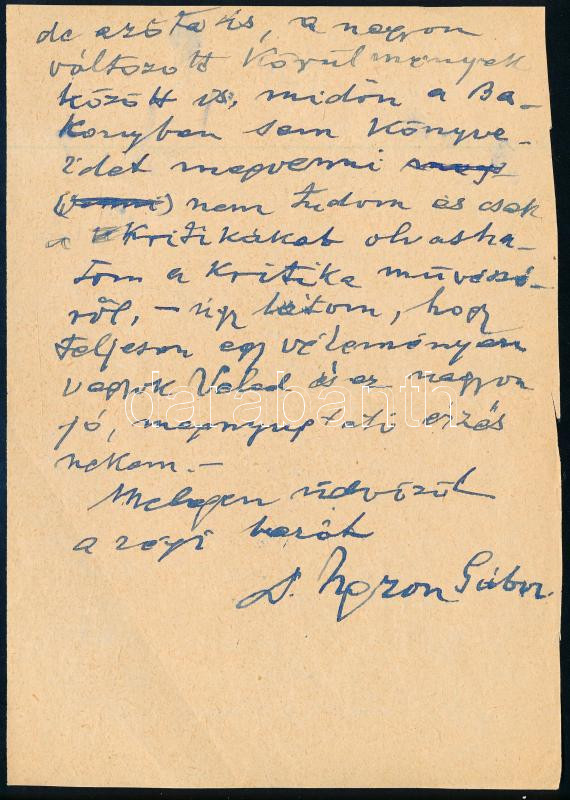 de azóta is, a nagyon
változott körülmények
között is, midőn a Ba-
konyban sem könyve-
idet megvenni
nem tudom és csak
a kritikákat olvasha-
tom a kritika művészé-
ről, – úgy látom, hogy
teljesen egy véleményen
vagyok Veled és ez nagyon
jó, megnyugtató érzés
nekem. –
Melegen üdvözöl
a régi barát
Dr. Ugron Gábor.
darabanth